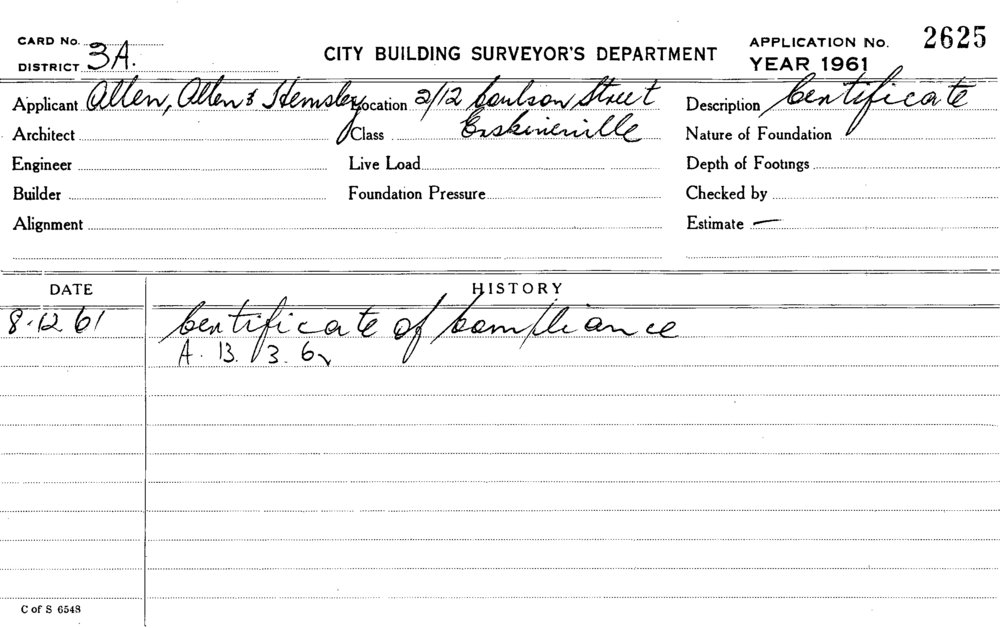 CARD No.
DISTRICT 3A.
CITY BUILDING SURVEYOR'S DEPARTMENT
APPLICATION No. 2625
YEAR 1961
Applicant Allen, Allen & Hemsley Location 2/12 Coulson Street Description Certificate
Architect Class Erskineville Nature of Foundation
Engineer Live Load Depth of Footings
Builder Foundation Pressure Checked by
Alignment Estimate —
DATE HISTORY
8.12.61 Certificate of Compliance
A. 13. 3. 62
C of S 6548